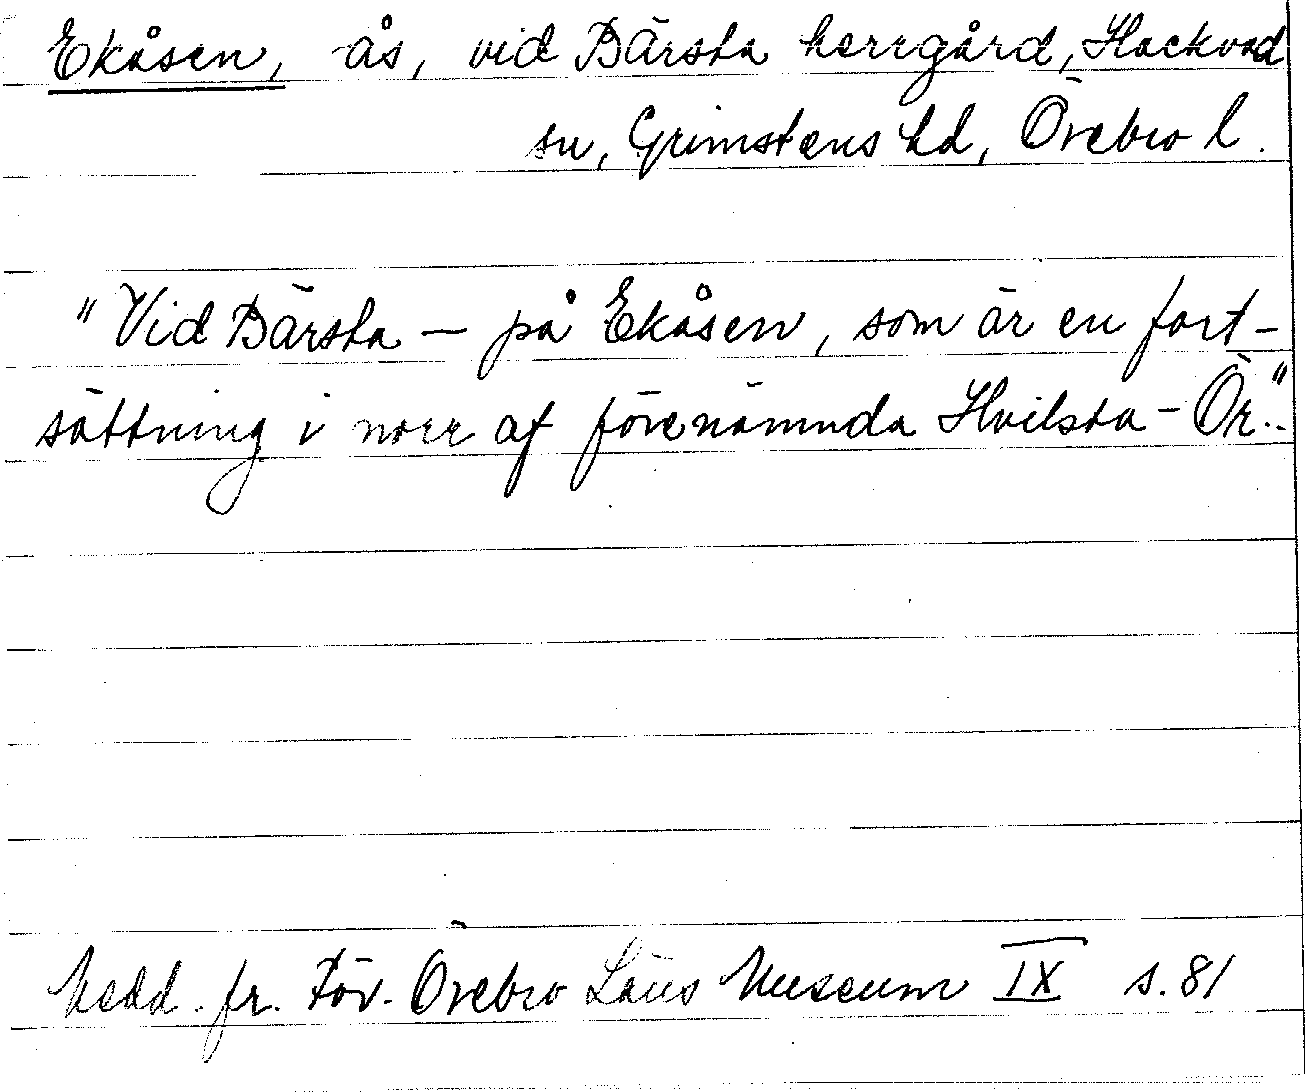 Ekåsen, ås, vid Bärsta herrgård, Hackvad
sn, Grimstens hd, Örebro l.
"Vid Bärsta – på Ekåsen, som är en fort-
sättning i norr af förenämnda Hvilsta-Ör."
Medd. fr. För. Örebro Läns Museum IX s. 81